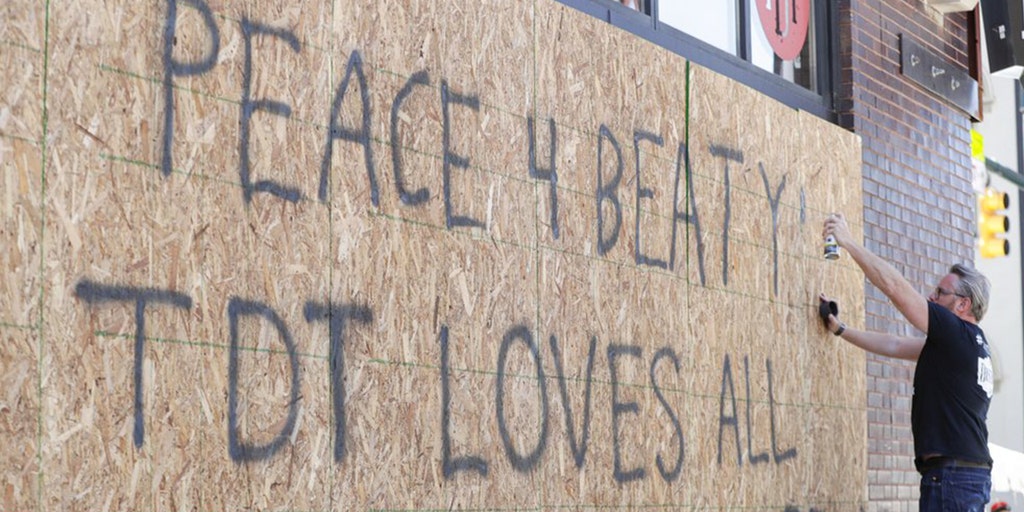 PEACE 4 BEATTY'
TDT LOVES ALL